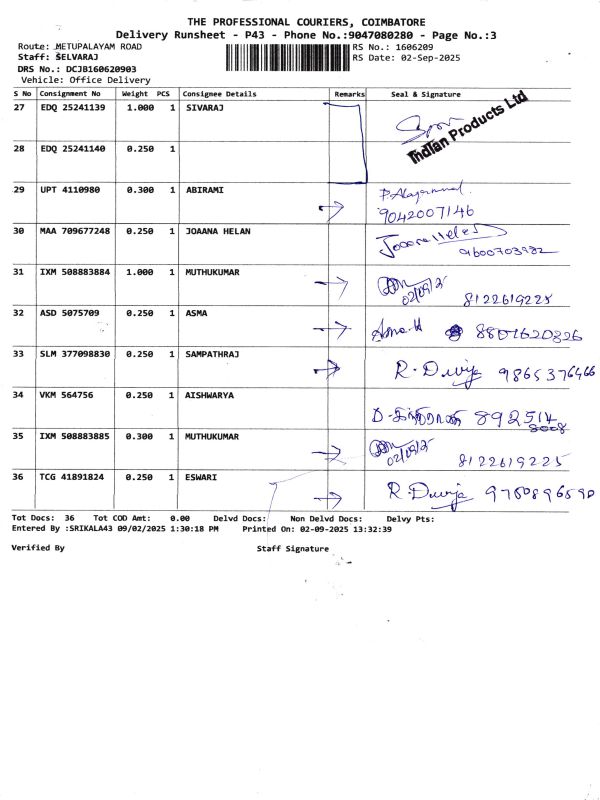 THE PROFESSIONAL COURIERS, COIMBATORE
Delivery Runsheet - P43 - Phone No.:9047080280 - Page No.:3
Route: METUPALAYAM ROAD
RS No.: 1606209
Staff: SELVARAJ
RS Date: 02-Sep-2025
DRS No.: DCJB160620903
Vehicle: Office Delivery
S No Consignment No Weight PCS Consignee Details Remarks Seal & Signature
27 EDQ 25241139 1.000 1 SIVARAJ
Indian Products Ltd
28 EDQ 25241140 0.250 1
29 UPT 4110980 0.300 1 ABIRAMI
9042007146
30 MAA 709677248 0.250 1 JOAANA HELAN
9600703982
31 IXM 508883884 1.000 1 MUTHUKUMAR
02/09/25 8122619225
32 ASD 5075709 0.250 1 ASMA Asma.H 8801620326
33 SLM 377098830 0.250 1 SAMPATHRAJ R. Divya 9865376466
34 VKM 564756 0.250 1 AISHWARYA
35 IXM 508883885 0.300 1 MUTHUKUMAR
02/09/25 8122619225
36 TCG 41891824 0.250 1 ESWARI R. Divya
Tot Docs: 36 Tot COD Amt: 0.00 Delvd Docs: Non Delvd Docs: Delvy Pts:
Entered By :SRIKALA43 09/02/2025 1:30:18 PM Printed On: 02-09-2025 13:32:39
Verified By Staff Signature